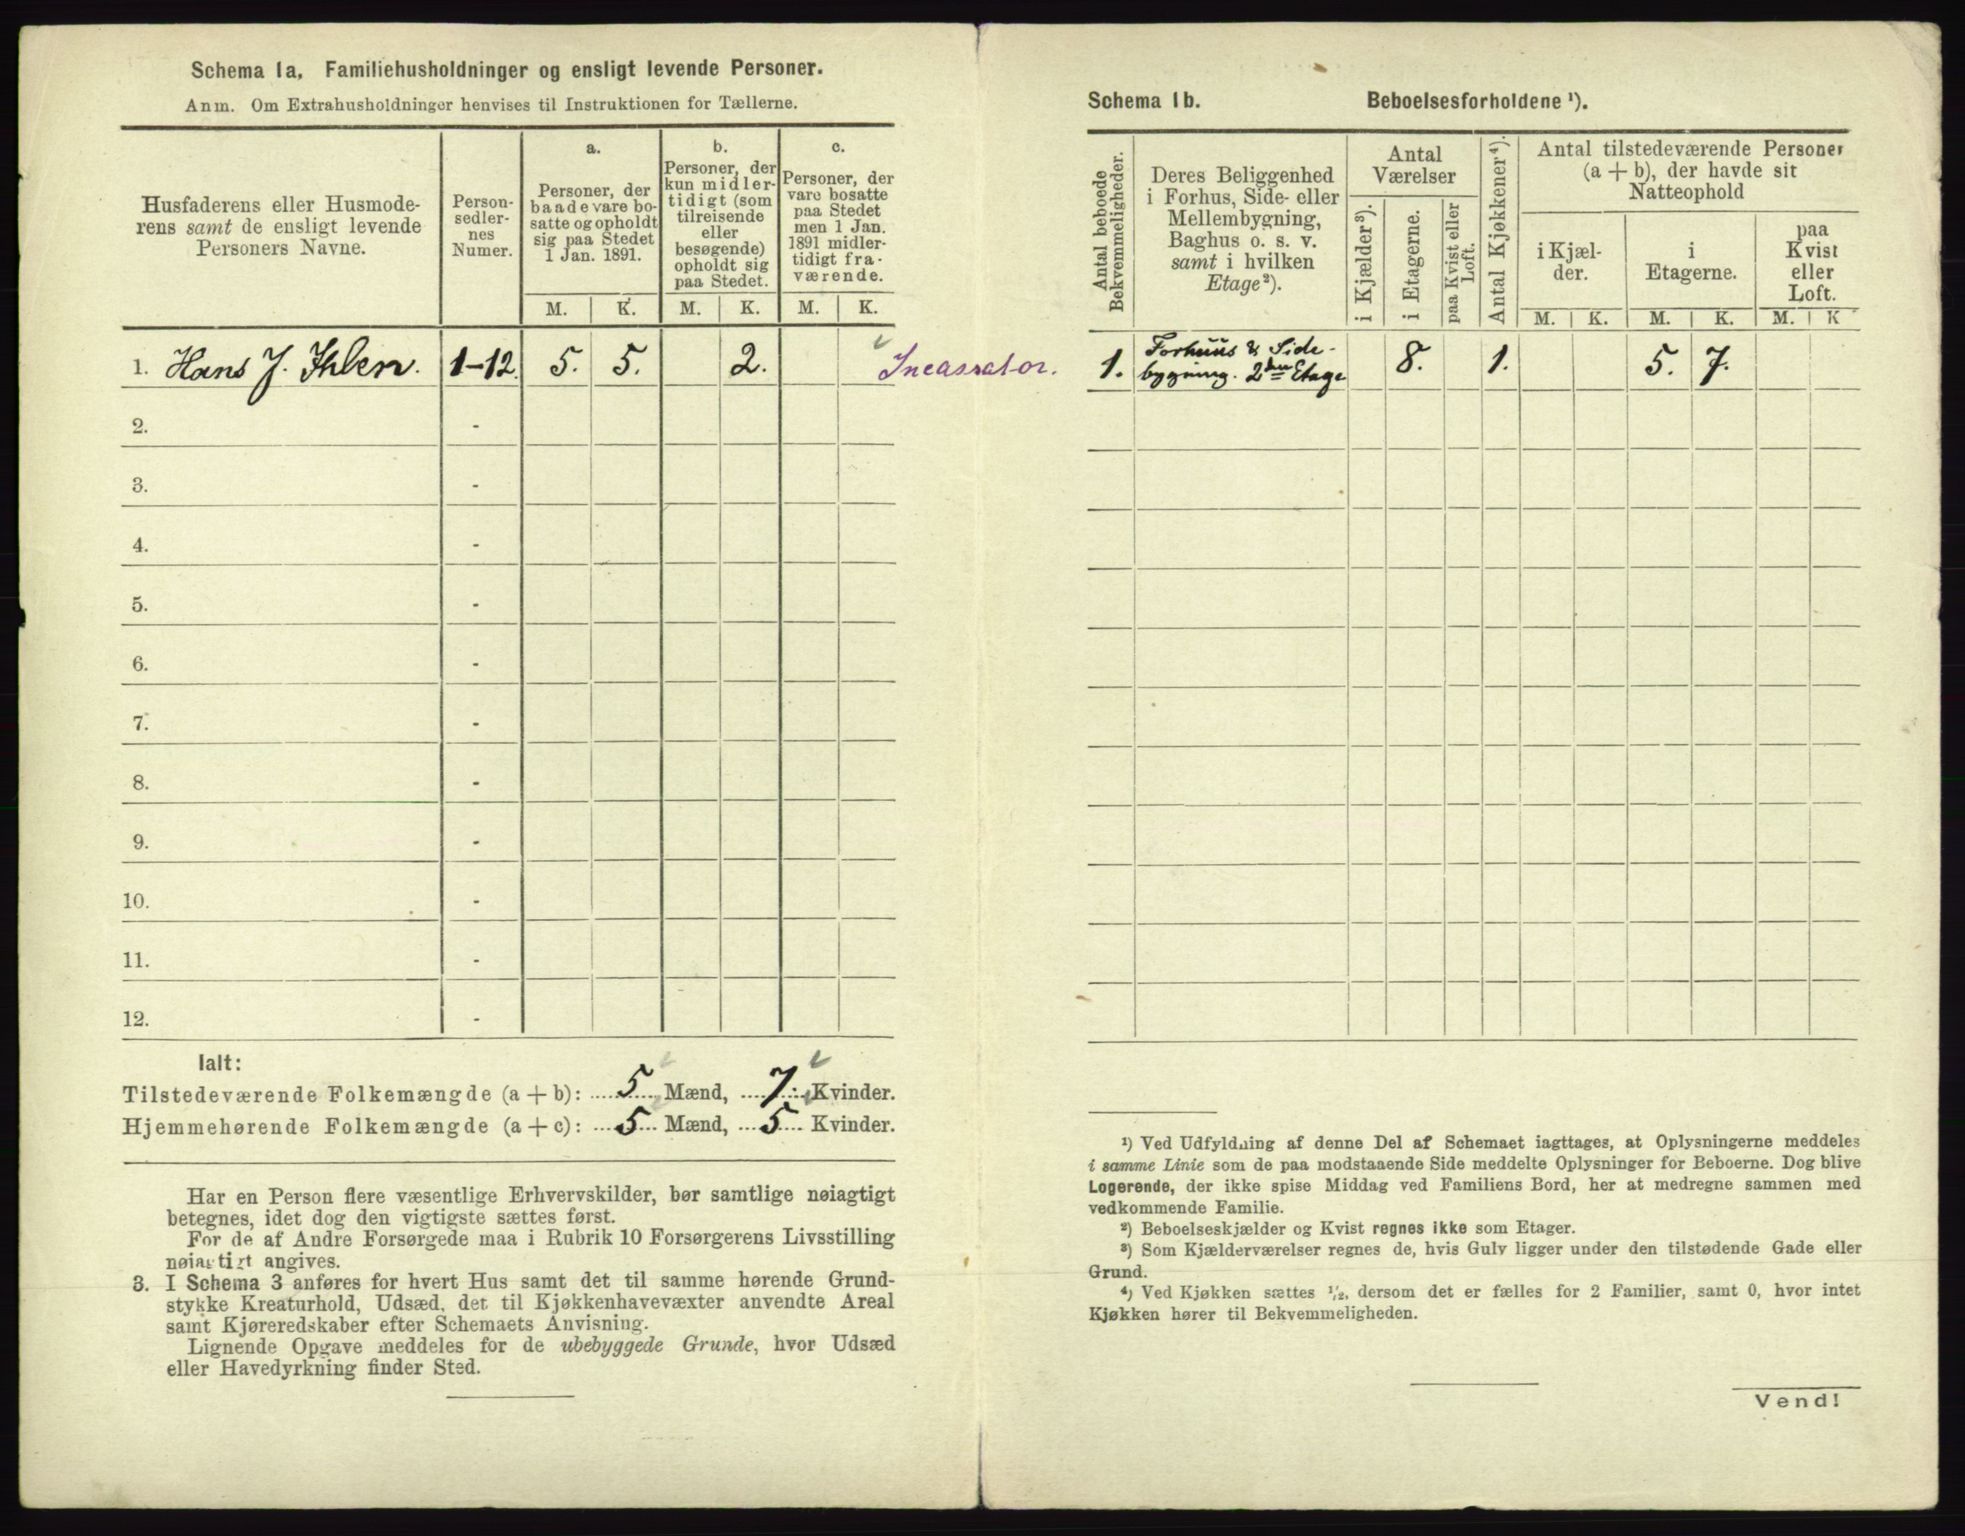 Schema 1a. Familiehusholdninger og ensligt levende Personer.
Anm. Om Extrahusholdninger henvises til Instruktionen for Tællerne.
Husfaderens eller Husmode-
rens samt de ensligt levende
Personers Navne.
Person-
sedler-
nes
Numer.
a.
Personer, der
baade vare bo-
satte og opholdt
sig paa Stedet
1 Jan. 1891.
M. K.
b.
Personer, der
kun midler-
tidigt (som
tilreisende
eller
besøgende)
opholdt sig
paa Stedet.
M. K.
c.
Personer, der
vare bosatte
paa Stedet
men 1 Jan.
1891 midler-
tidigt fra-
værende.
M. K.
1. Hans J. Ihlen. 1-12. 5. 5. 2. Incassator.
2. -
3. -
4. -
5. -
6. -
7. -
8. -
9. -
10. -
11. -
12. -
Ialt:
Tilstedeværende Folkemængde (a + b): 5 Mænd, 7 Kvinder.
Hjemmehørende Folkemængde (a + c): 5 Mænd, 5 Kvinder.
Har en Person flere væsentlige Erhvervskilder, bør samtlige nøiagtigt
betegnes, idet dog den vigtigste sættes først.
For de af Andre Forsørgede maa i Rubrik 10 Forsørgerens Livsstilling
nøiagtigt angives.
3. I Schema 3 anføres for hvert Hus samt det til samme hørende Grund-
stykke Kreaturhold, Udsæd, det til Kjøkkenhavevæxter anvendte Areal
samt Kjøreredskaber efter Schemaets Anvisning.
Lignende Opgave meddeles for de ubebyggede Grunde, hvor Udsæd
eller Havedyrkning finder Sted.
Schema 1b. Beboelsesforholdene ¹).
Antal beboede
Bekvemmeligheder.
Deres Beliggenhed
i Forhus, Side- eller
Mellembygning,
Baghus o. s. v.
samt i hvilken
Etage²).
Antal
Værelser
i Kjælder³).
i Etagerne.
paa Kvist eller
Loft.
Antal Kjøkkener⁴).
Antal tilstedeværende Personer
(a + b), der havde sit
Natteophold
i Kjæl-
der.
i
Etagerne.
paa
Kvist
eller
Loft.
M. K. M. K. M. K
1. Forhuus & Side-
bygning. 2den Etage 8. 1. 5. 7.
¹) Ved Udfyldning af denne Del af Schemaet iagttages, at Oplysningerne meddeles
i samme Linie som de paa modstaaende Side meddelte Oplysninger for Beboerne. Dog blive
Logerende, der ikke spise Middag ved Familiens Bord, her at medregne sammen med
vedkommende Familie.
²) Beboelseskjælder og Kvist regnes ikke som Etager.
³) Som Kjælderværelser regnes de, hvis Gulv ligger under den tilstødende Gade eller
Grund.
⁴) Ved Kjøkken sættes ½, dersom det er fælles for 2 Familier, samt 0, hvor intet
Kjøkken hører til Bekvemmeligheden.
Vend!